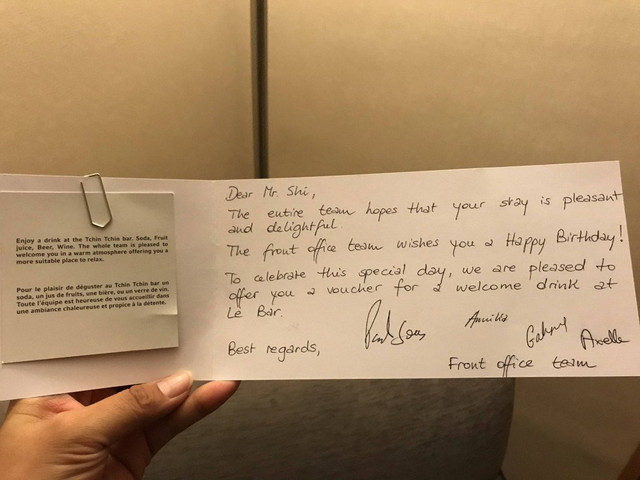 Enjoy a drink at the Tchin Tchin bar. Soda, Fruit
juice, Beer, Wine. The whole team is pleased to
welcome you in a warm atmosphere offering you a
more suitable place to relax.
Pour le plaisir de déguster au Tchin Tchin bar un
soda, un jus de fruits, une bière, ou un verre de vin.
Toute l'équipe est heureuse de vous accueillir dans
une ambiance chaleureuse et propice à la détente.
Dear Mr. Shi,
The entire team hopes that your stay is pleasant
and delightful.
The front office team wishes you a Happy Birthday!
To celebrate this special day, we are pleased to
offer you a voucher for a welcome drink at
Le Bar.
Best regards,
Axelle
Front office team